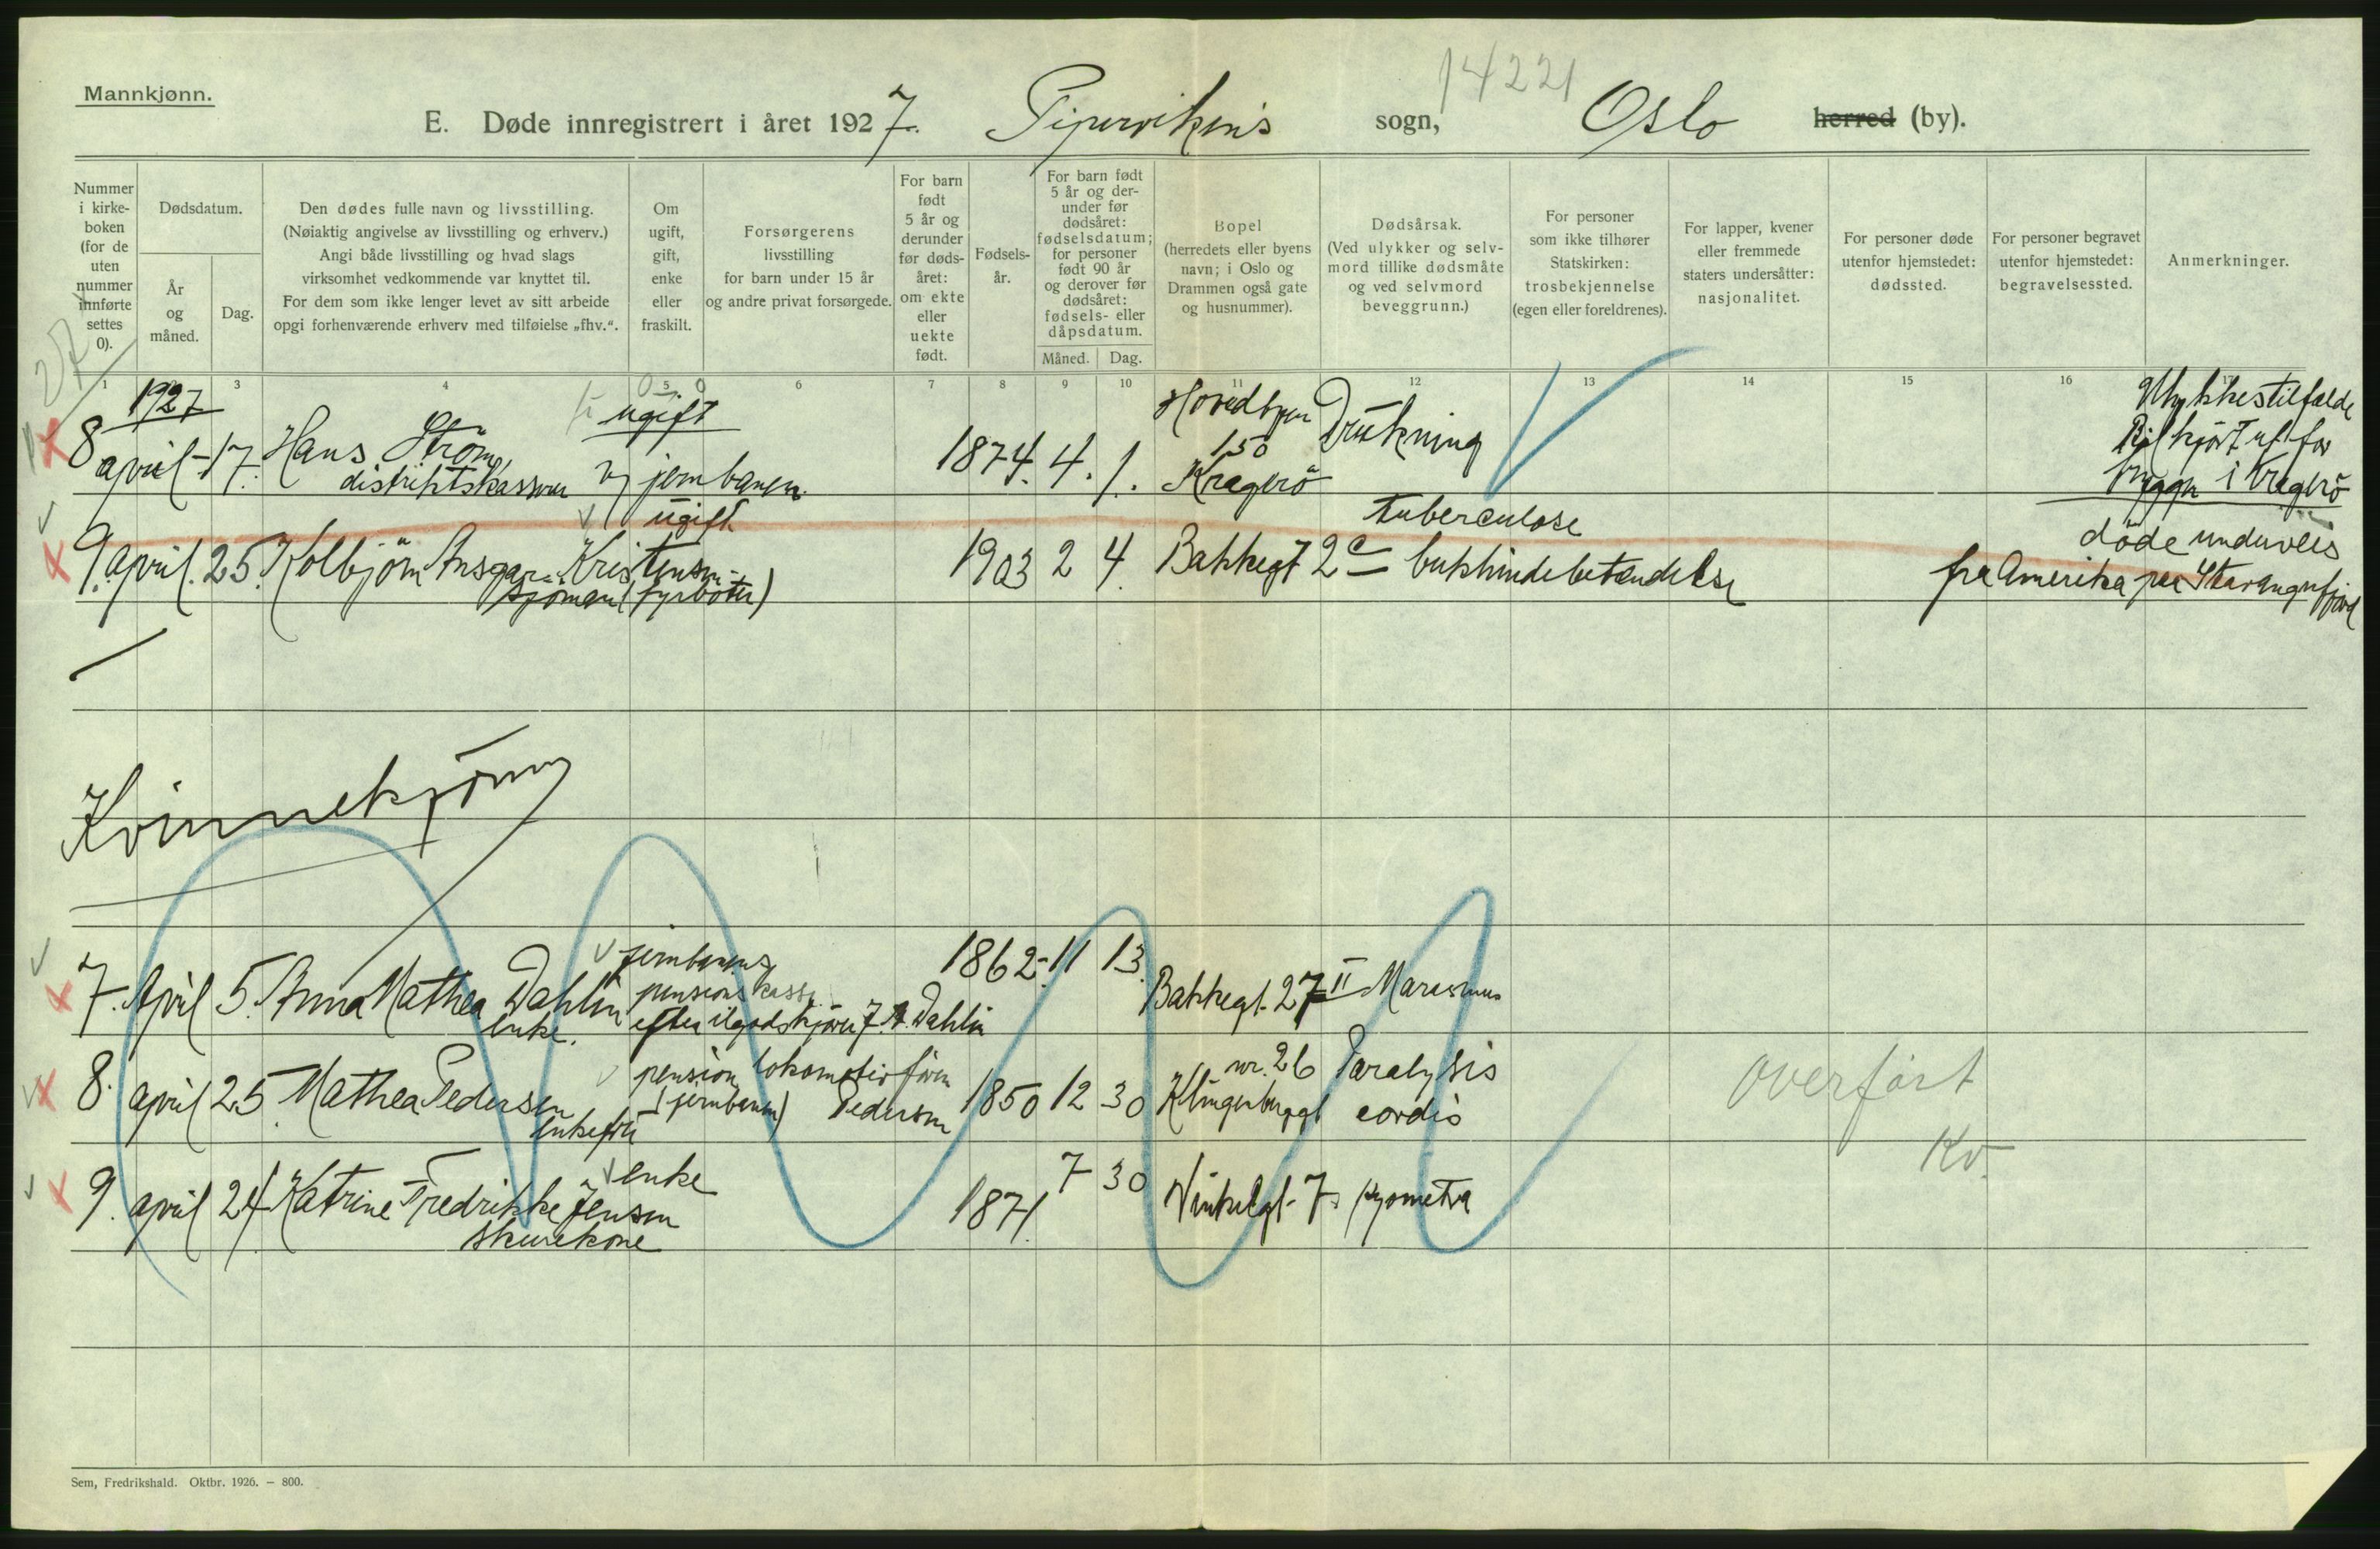 Mannkjønn.
14221
E. Døde innregistrert i året 1927. Pipervikens sogn, Oslo herred (by).
Nummer i kirke-boken (for de uten nummer innførte settes 0).
Dødsdatum.
År og måned.
Dag.
Den dødes fulle navn og livsstilling.
(Nøiaktig angivelse av livsstilling og erhverv.)
Angi både livsstilling og hvad slags
virksomhet vedkommende var knyttet til.
For dem som ikke lenger levet av sitt arbeide
opgi forhenværende erhverv med tilføielse „fhv.“.
Om ugift, gift, enke eller fraskilt.
Forsørgerens
livsstilling
for barn under 15 år
og andre privat forsørgede.
For barn født 5 år og derunder før døds-året: om ekte eller uekte født.
Fødsels-år.
For barn født 5 år og der-under før dødsåret: fødselsdatum; for personer født 90 år og derover før dødsåret: fødsels- eller dåpsdatum.
Måned. Dag.
Bopel
(herredets eller byens
navn; i Oslo og
Drammen også gate
og husnummer).
Dødsårsak.
(Ved ulykker og selv-
mord tillike dødsmåte
og ved selvmord
beveggrunn.)
For personer
som ikke tilhører
Statskirken:
trosbekjennelse
(egen eller foreldrenes).
For lapper, kvener
eller fremmede
staters undersåtter:
nasjonalitet.
For personer døde
utenfor hjemstedet:
dødssted.
For personer begravet
utenfor hjemstedet:
begravelsessted.
Anmerkninger.
27
1 3 4 5 6 7 8 9 10 11 12 13 14 15 16
1927
8 april 17. Hans Ström, ugift 1874. 4. 1. Hovedbyen 150 Kragerö Drukning
distriktskasserer v jernbanen.
Ulykkestilfælde
Bil kjørt utfor
brygge i Kragerö
9. april. 25. Kolbjörn Ansgar Kristensen ugift 1903 2 4. Bakkegt 2 c tuberculose bukhindebetændelse
sjömand (fyrböter)
döde underveis
fra Amerika paa Stavangerfjord
Kvinnekjönn
7. April 5. Anna Mathea Dahlin 1862 11 13. Bakkegt. 27 II Marasmus
enke.
jernbanens
pensionskasse
efter ilgodskjörer J. A. Dahlin
8. april 25 Mathea Pedersen 1850 12 30 Klingenberggt nr. 26 Paralysis cordis
enkefru
pension lokomotivförer
(jernbanen) Pedersen
overført
Kv.
9. april 24 Katrine Fredrikke Jensen enke 1871. 7 30 Vinkelgt. 7 Pyometra
skurekone
Sem, Fredrikshald. Oktbr. 1926. — 800.